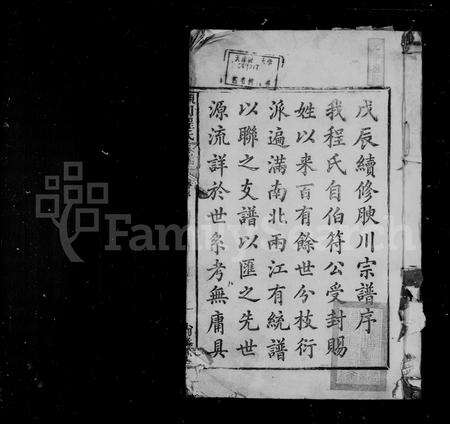 戊辰續修腴川宗譜序
我程氏自伯符公受封賜
姓以來百有餘世分枝衍
派遍滿南北兩江有統譜
以聯之支譜以匯之先世
源流詳於世系考無庸具
FamilySearch